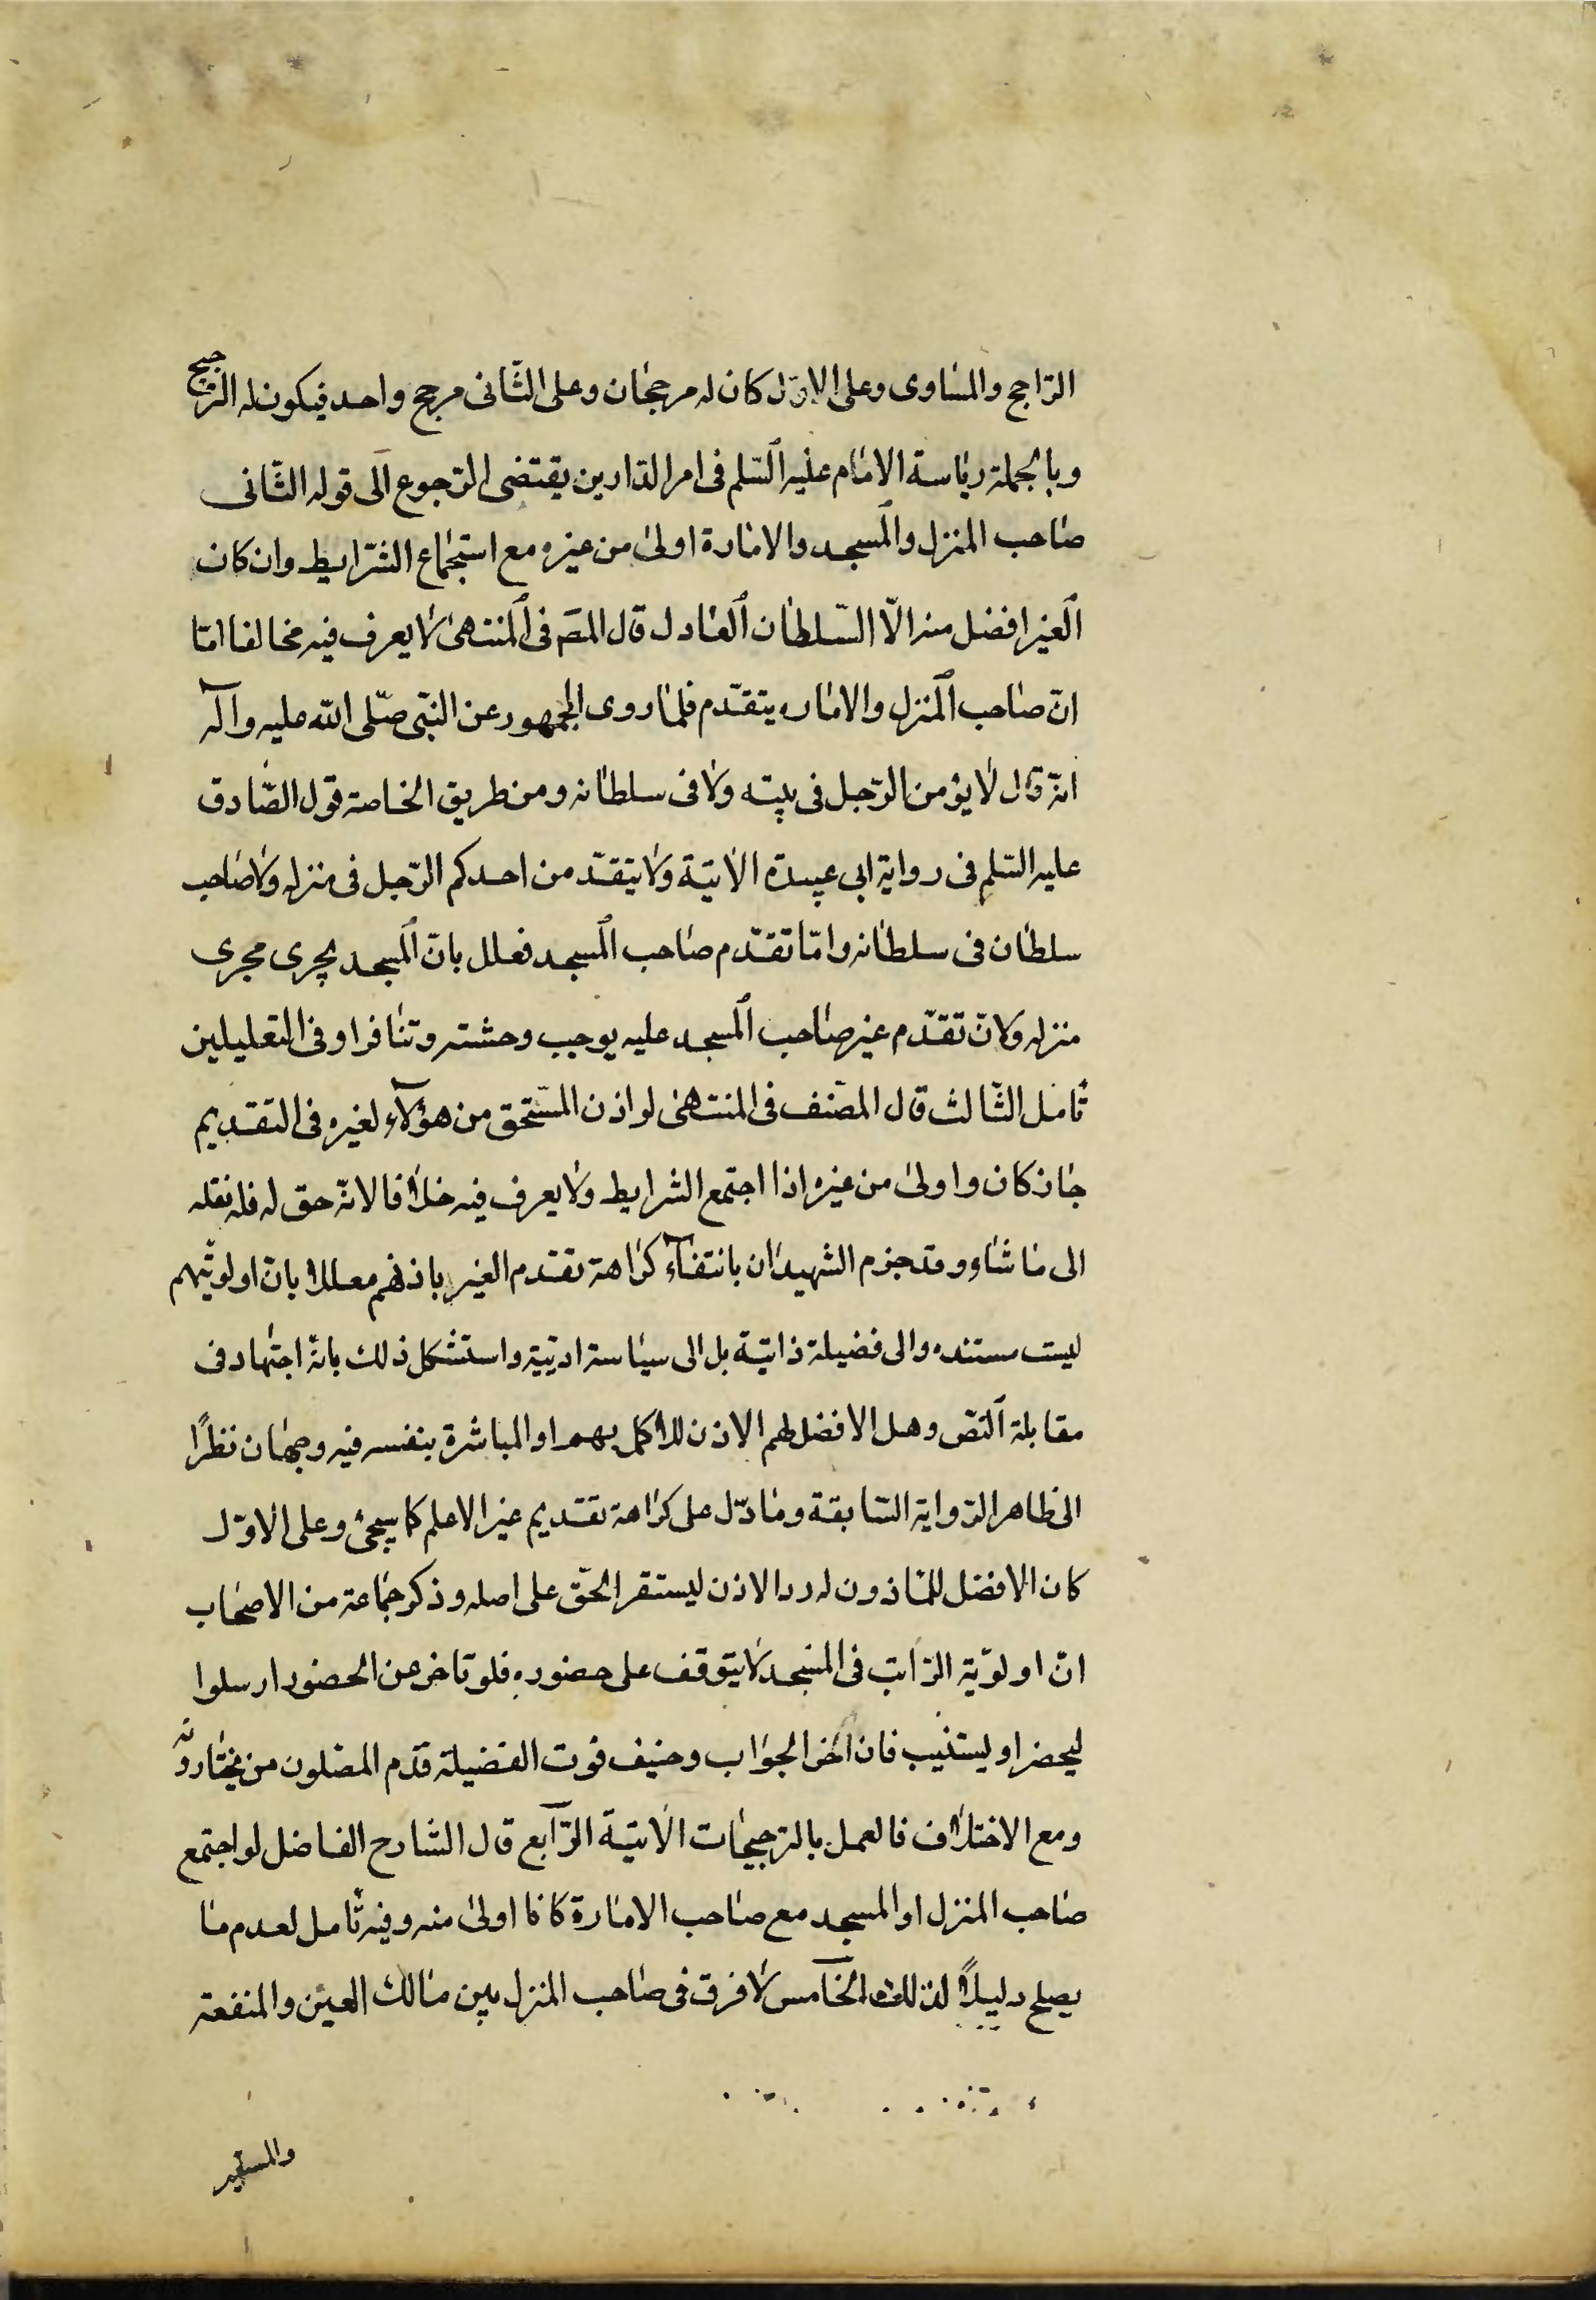 الراجح والمساوى وعلى الاول كان له مرجحان وعلى الثانى مرجح واحد فيكون له الترجيح
وبالجملة رياسة الامام عليه السلم فى امر الدارين يقتضى الرجوع الى قوله الثانى
صاحب المنزل والمسجد والامارة اولى من غيره مع استجماع الشرايط وان كان
الغير افضل منه الا السلطان العادل قال المصَ فى المنتهى لا يعرف فيه مخالفا اما
ان صاحب المنزل والاماره يتقدم فلما روى الجمهور عن النبى صلى الله عليه وآله
انه قال لا يؤمن الرجل فى بيته ولا فى سلطانه ومن طريق الخاصة قول الصادق
عليه السلم فى رواية ابى عبيدة الاتية ولا يتقدمن احدكم الرجل فى منزله ولا صاحب
سلطان فى سلطانه واما تقدم صاحب المسجد فعلل بان المسجد يجرى مجرى
منزله ولان تقدم غير صاحب المسجد عليه يوجب وحشته وتنافرا وفى التعليلين
تامل الثالث قال المصنف فى المنتهى لو اذن المستحق من هؤلآء لغيره فى التقديم
جاز كان واولى من غيره اذا اجتمع الشرايط ولا يعرف فيه خلافا لانه حق له فله نقله
الى ما شاو وقد جزم الشهيدان بانتفآء كراهة تقدم الغير باذنهم معللا بان اولويتهم
ليست مستنده والى فضيلة ذاتية بل الى سياسة ادبية واستشكل ذلك بانه اجتهاد فى
مقابلة النص وهل الافضل لهم الاذن للاكمل بهم او المباشرة بنفسه فيه وجهان نظرًا
الى ظاهر الرواية السابقة وما دل على كراهة تقديم غير الاعلم كما سيجئ وعلى الاول
كان الافضل للماذون له رد الاذن ليستقر الحق على اصله وذكر جماعة من الاصحاب
ان اولوية الراتب فى المسجد لا يتوقف على حضوره فلو تاخر عن الحضور ارسلوا
ليحضر او يستنيب فان اخر الجواب وخيف فوت الفضيلة قدم المصلون من يختارونه
ومع الاختلاف فالعمل بالترجيحات الاتية الرابع قال الشارح الفاضل لو اجتمع
صاحب المنزل او المسجد مع صاحب الامارة كانا اولى منه وفيه تامل لعدم ما
يصلح دليلاً لذلك الخامس لا فرق فى صاحب المنزل بين مالك العين والمنفعة
والمستعير